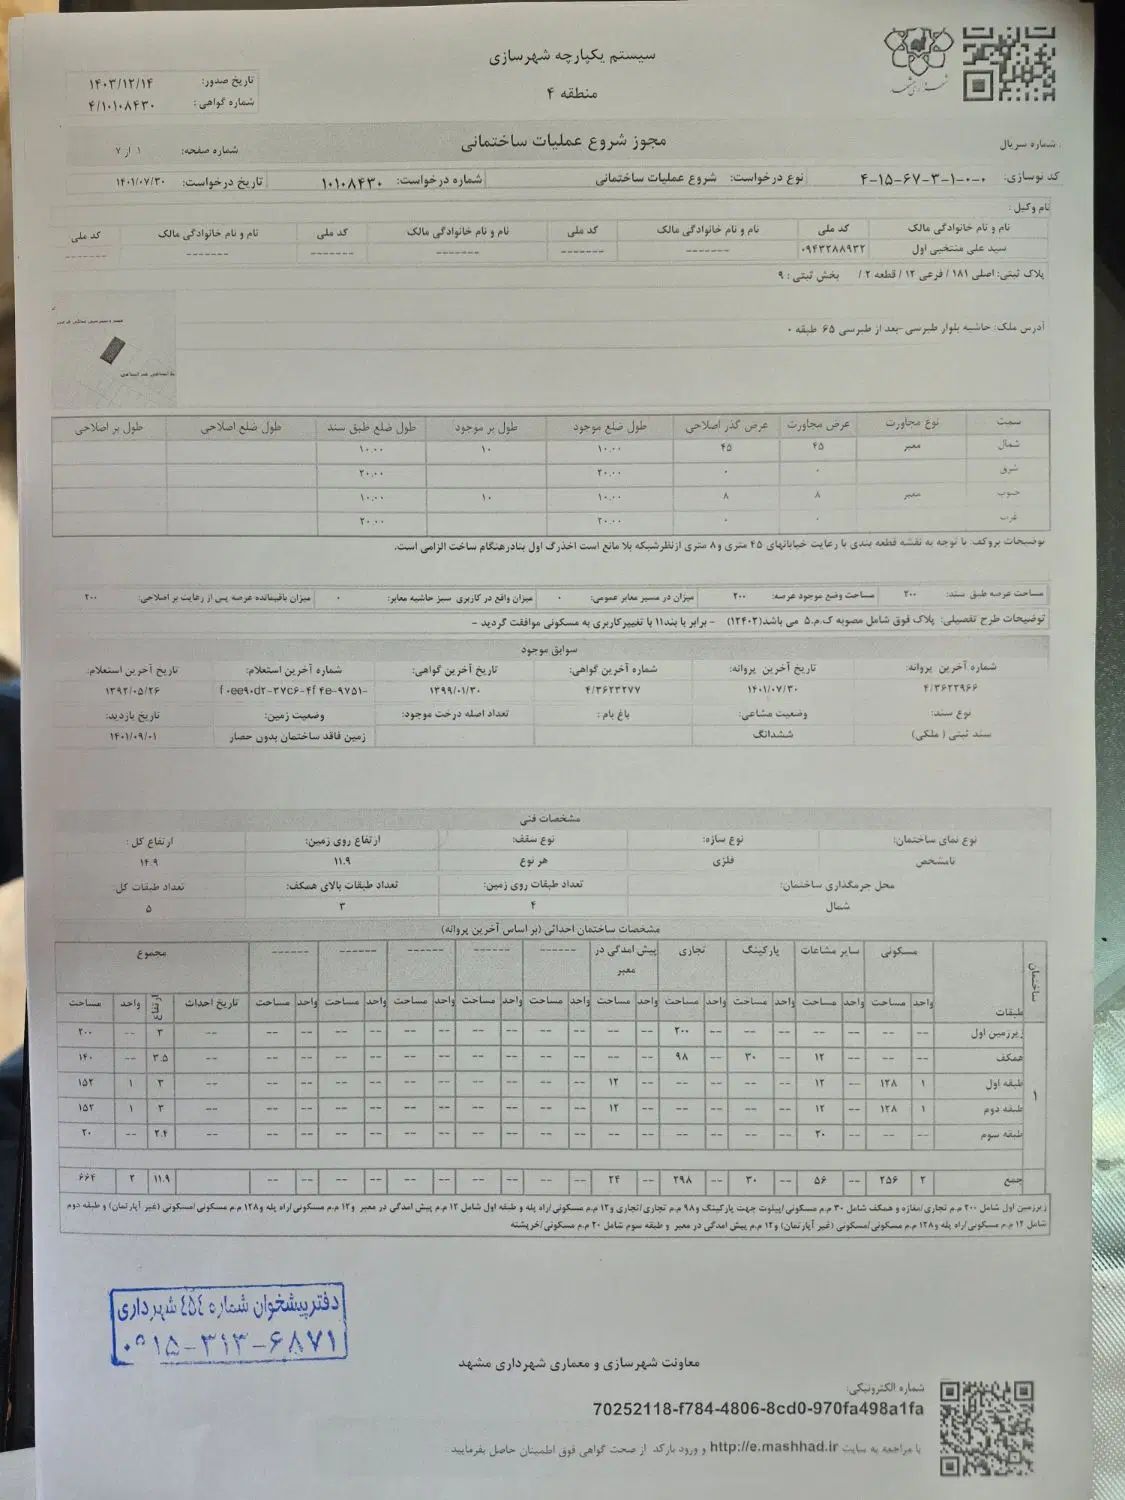 سیستم یکپارچه شهرسازی
منطقه ۴
تاریخ صدور: ۱۴۰۳/۱۲/۱۴
شماره گواهی: ۴/۱۰۱۰۸۴۳۰
مجوز شروع عملیات ساختمانی
شماره صفحه: ۱ از ۷
شماره سریال
کد نوسازی: ۴-۱۵-۶۷-۳-۱-۰-۰ نوع درخواست: شروع عملیات ساختمانی شماره درخواست: ۱۰۱۰۸۴۳۰ تاریخ درخواست: ۱۴۰۱/۰۷/۳۰
نام وکیل:
نام و نام خانوادگی مالک کد ملی نام و نام خانوادگی مالک کد ملی نام و نام خانوادگی مالک کد ملی نام و نام خانوادگی مالک کد ملی
سید علی منتخبی اول ۰۹۴۳۲۸۸۹۳۲ ------- ------- ------- ------- ------- -------
پلاک ثبتی: اصلی ۱۸۱ / فرعی ۱۲ / قطعه ۲ / بخش ثبتی: ۹
آدرس ملک: حاشیه بلوار طبرسی -بعد از طبرسی ۶۵ طبقه ۰
سمت نوع مجاورت عرض مجاورت عرض گذر اصلاحی طول ضلع موجود طول بر موجود طول ضلع طبق سند طول ضلع اصلاحی طول بر اصلاحی
شمال معبر ۴۵ ۴۵ ۱۰.۰۰ ۱۰ ۱۰.۰۰
شرق ۰ ۰ ۲۰.۰۰ ۲۰.۰۰
جنوب معبر ۸ ۸ ۱۰.۰۰ ۱۰ ۱۰.۰۰
غرب ۰ ۰ ۲۰.۰۰ ۲۰.۰۰
توضیحات بروکف: با توجه به نقشه قطعه بندی با رعایت خیابانهای ۴۵ متری و۸ متری ازنظرشبکه بلا مانع است اخذرگ اول بنادرهنگام ساخت الزامی است.
مساحت عرصه طبق سند: ۲۰۰ مساحت وضع موجود عرصه: ۲۰۰ میزان در مسیر معابر عمومی: ۰ میزان واقع در کاربری سبز حاشیه معابر: ۰ میزان باقیمانده عرصه پس از رعایت بر اصلاحی: ۲۰۰
توضیحات طرح تفصیلی: پلاک فوق شامل مصوبه ک.م.۵ می باشد(۱۲۴۰۲) - برابر با بند۱۱ با تغییرکاربری به مسکونی موافقت گردید -
سوابق موجود
شماره آخرین پروانه: تاریخ آخرین پروانه: شماره آخرین گواهی: تاریخ آخرین گواهی: شماره آخرین استعلام: تاریخ آخرین استعلام:
۴/۳۶۲۳۹۶۶ ۱۴۰۱/۰۷/۳۰ ۴/۳۶۲۳۲۷۷ ۱۳۹۹/۰۱/۳۰ ۱۳۹۲/۰۵/۲۶
نوع سند: وضعیت مشاعی: باغ بام: تعداد اصله درخت موجود: وضعیت زمین: تاریخ بازدید:
سند ثبتی (ملکی) ششدانگ زمین فاقد ساختمان بدون حصار ۱۴۰۱/۰۹/۰۱
مشخصات فنی
نوع نمای ساختمان: نوع سازه: نوع سقف: ارتفاع روی زمین: ارتفاع کل:
نامشخص فلزی هر نوع ۱۱.۹ ۱۴.۹
محل جرمگذاری ساختمان: تعداد طبقات روی زمین: تعداد طبقات بالای همکف: تعداد طبقات کل:
شمال ۴ ۳ ۵
مشخصات ساختمان احداثی (بر اساس آخرین پروانه)
ساختمان طبقات مسکونی سایر مشاعات پارکینگ تجاری پیش آمدگی در معبر ------ ------ ------ ------ ------ مجموع
واحد مساحت واحد مساحت واحد مساحت واحد مساحت واحد مساحت واحد مساحت واحد مساحت واحد مساحت واحد مساحت واحد مساحت تاریخ احداث ارتفاع واحد مساحت
زیرزمین اول -- -- -- -- -- -- -- ۲۰۰ -- -- -- -- -- -- -- -- -- -- -- -- -- ۳ -- ۲۰۰
همکف -- -- -- ۱۲ -- ۳۰ -- ۹۸ -- -- -- -- -- -- -- -- -- -- -- -- -- ۳.۵ -- ۱۴۰
طبقه اول ۱ ۱۲۸ -- ۱۲ -- -- -- -- -- ۱۲ -- -- -- -- -- -- -- -- -- -- -- ۳ ۱ ۱۵۲
۱ طبقه دوم ۱ ۱۲۸ -- ۱۲ -- -- -- -- -- ۱۲ -- -- -- -- -- -- -- -- -- -- -- ۳ ۱ ۱۵۲
طبقه سوم -- -- -- ۲۰ -- -- -- -- -- -- -- -- -- -- -- -- -- -- -- -- -- ۲.۴ -- ۲۰
جمع ۲ ۲۵۶ -- ۵۶ -- ۳۰ -- ۲۹۸ -- ۲۴ -- -- -- -- -- -- -- -- -- -- ۱۱.۹ ۲ ۶۶۴
زیرزمین اول شامل ۲۰۰ م.م تجاری/مغازه و همکف شامل ۳۰ م.م مسکونی/پیلوت جهت پارکینگ و۹۸ م.م تجاری/تجاری و۱۲ م.م مسکونی/راه پله و طبقه اول شامل ۱۲ م.م پیش آمدگی در معبر و۱۲ م.م مسکونی/راه پله و۱۲۸ م.م مسکونی/مسکونی (غیر آپارتمان) و طبقه دوم
شامل ۱۲ م.م مسکونی/راه پله و۱۲۸ م.م مسکونی/مسکونی (غیر آپارتمان) و۱۲ م.م پیش آمدگی در معبر و طبقه سوم شامل ۲۰ م.م مسکونی/خرپشته
دفتر پیشخوان شماره ۴۵۴ شهرداری
۰۹۱۵-۳۱۳-۶۸۷۱
معاونت شهرسازی و معماری شهرداری مشهد
شماره الکترونیکی:
70252118-f784-4806-8cd0-970fa498a1fa
با مراجعه به سایت http://e.mashhad.ir و ورود بارکد از صحت گواهی فوق اطمینان حاصل بفرمایید